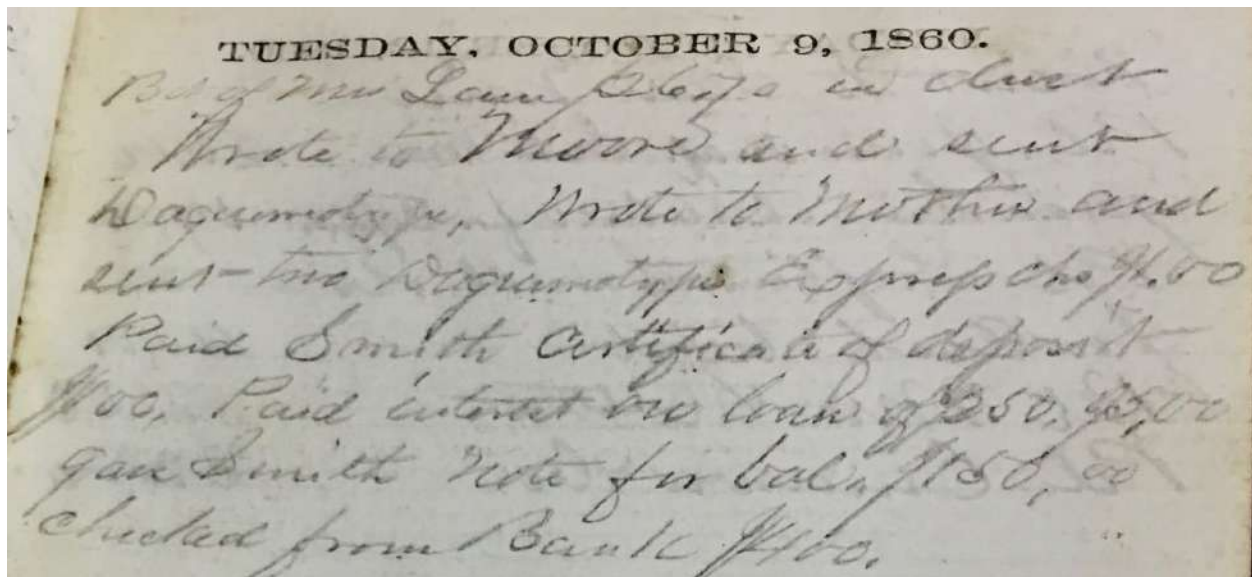 TUESDAY, OCTOBER 9, 1860.
of Mr in dust
Wrote to Moore and sent
Daguerrotype, Wrote to Mother and
sent two Daguerrotype Express chs $1.00
Paid Smith Certificate of deposit
$100, Paid interest on loan of 250. $5,00
gave Smith Note for bal. $150,00
checked from Bank $400.